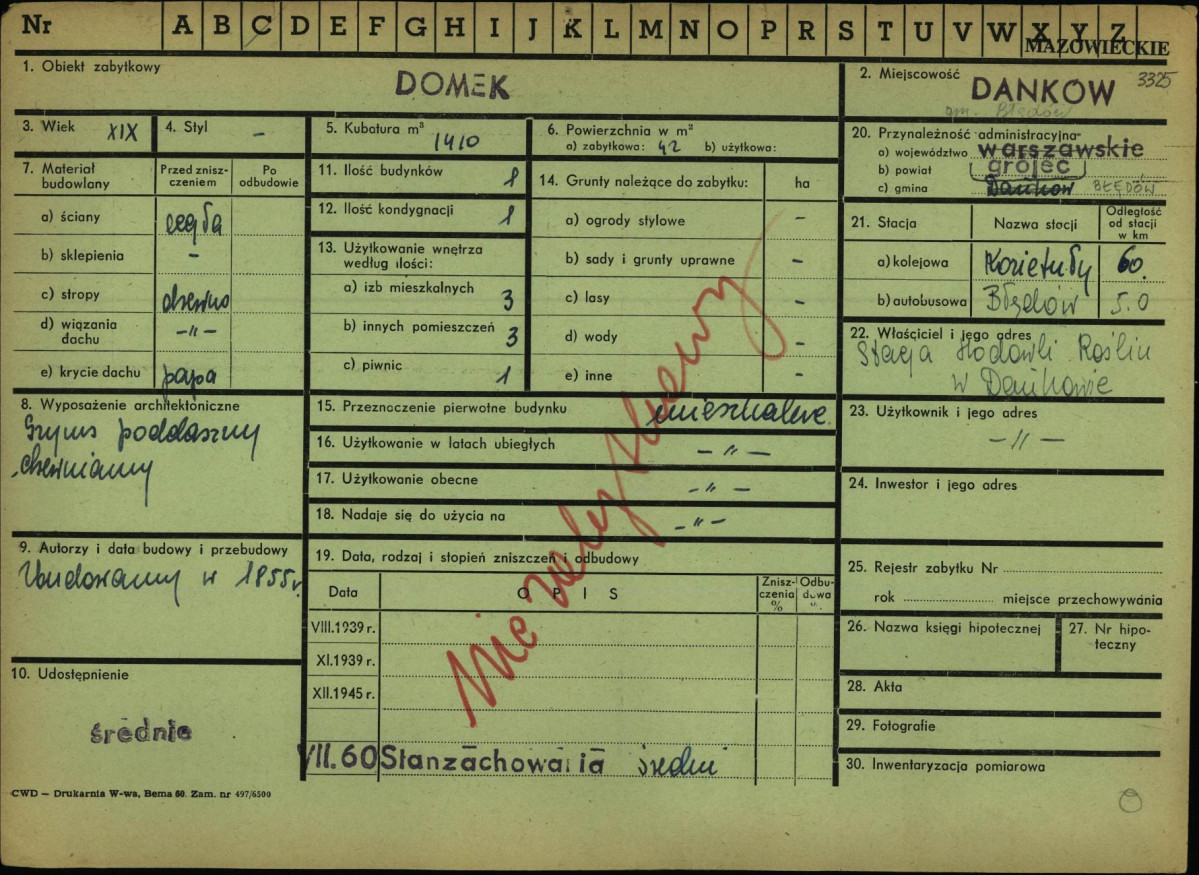 Nr A B C D E F G H I J K L M N O P R S T U V W X Y Z
MAZOWIECKIE
1. Obiekt zabytkowy
DOMEK
2. Miejscowość
DANKÓW 3325
gm. Błędów
3. Wiek XIX
4. Styl –
5. Kubatura m³ 1410
6. Powierzchnia w m²
a) zabytkowa: 42 b) użytkowa:
7. Materiał budowlany
Przed znisz-
czeniem
Po
odbudowie
a) ściany cegła
b) sklepienia –
c) stropy drewno
d) wiązania
dachu –"–
e) krycie dachu papa
8. Wyposażenie architektoniczne
Gzyms poddaszny
drewniany
9. Autorzy i data budowy i przebudowy
Zbudowany w 1855r.
10. Udostępnienie
średnie
11. Ilość budynków 1
12. Ilość kondygnacji 1
13. Użytkowanie wnętrza
według ilości:
a) izb mieszkalnych 3
b) innych pomieszczeń 3
c) piwnic 1
14. Grunty należące do zabytku: ha
a) ogrody stylowe –
b) sady i grunty uprawne –
c) lasy –
d) wody –
e) inne –
15. Przeznaczenie pierwotne budynku mieszkalne
16. Użytkowanie w latach ubiegłych –"–
17. Użytkowanie obecne –"–
18. Nadaje się do użycia na –"–
19. Data, rodzaj i stopień zniszczeń i odbudowy
Data OPIS
Znisz-
czenia
%
Odbu-
dowa
%
VIII.1939 r.
XI.1939 r.
XII.1945 r.
VII.60 Stan zachowania średni
Nie
20. Przynależność administracyjna
a) województwo warszawskie
b) powiat grójec
c) gmina Dańków BŁĘDÓW
21. Stacja Nazwa stacji
Odległość
od stacji
w km
a) kolejowa Kozietuły 60.
b) autobusowa Błędów 5.0
22. Właściciel i jego adres
Stacja Hodowli Roślin
w Dańkowie
23. Użytkownik i jego adres
–"–
24. Inwestor i jego adres
25. Rejestr zabytku Nr
rok miejsce przechowywania
26. Nazwa księgi hipotecznej
27. Nr hipo-
teczny
28. Akta
29. Fotografie
30. Inwentaryzacja pomiarowa
CWD — Drukarnia W-wa, Bema 60. Zam. nr 497/6500